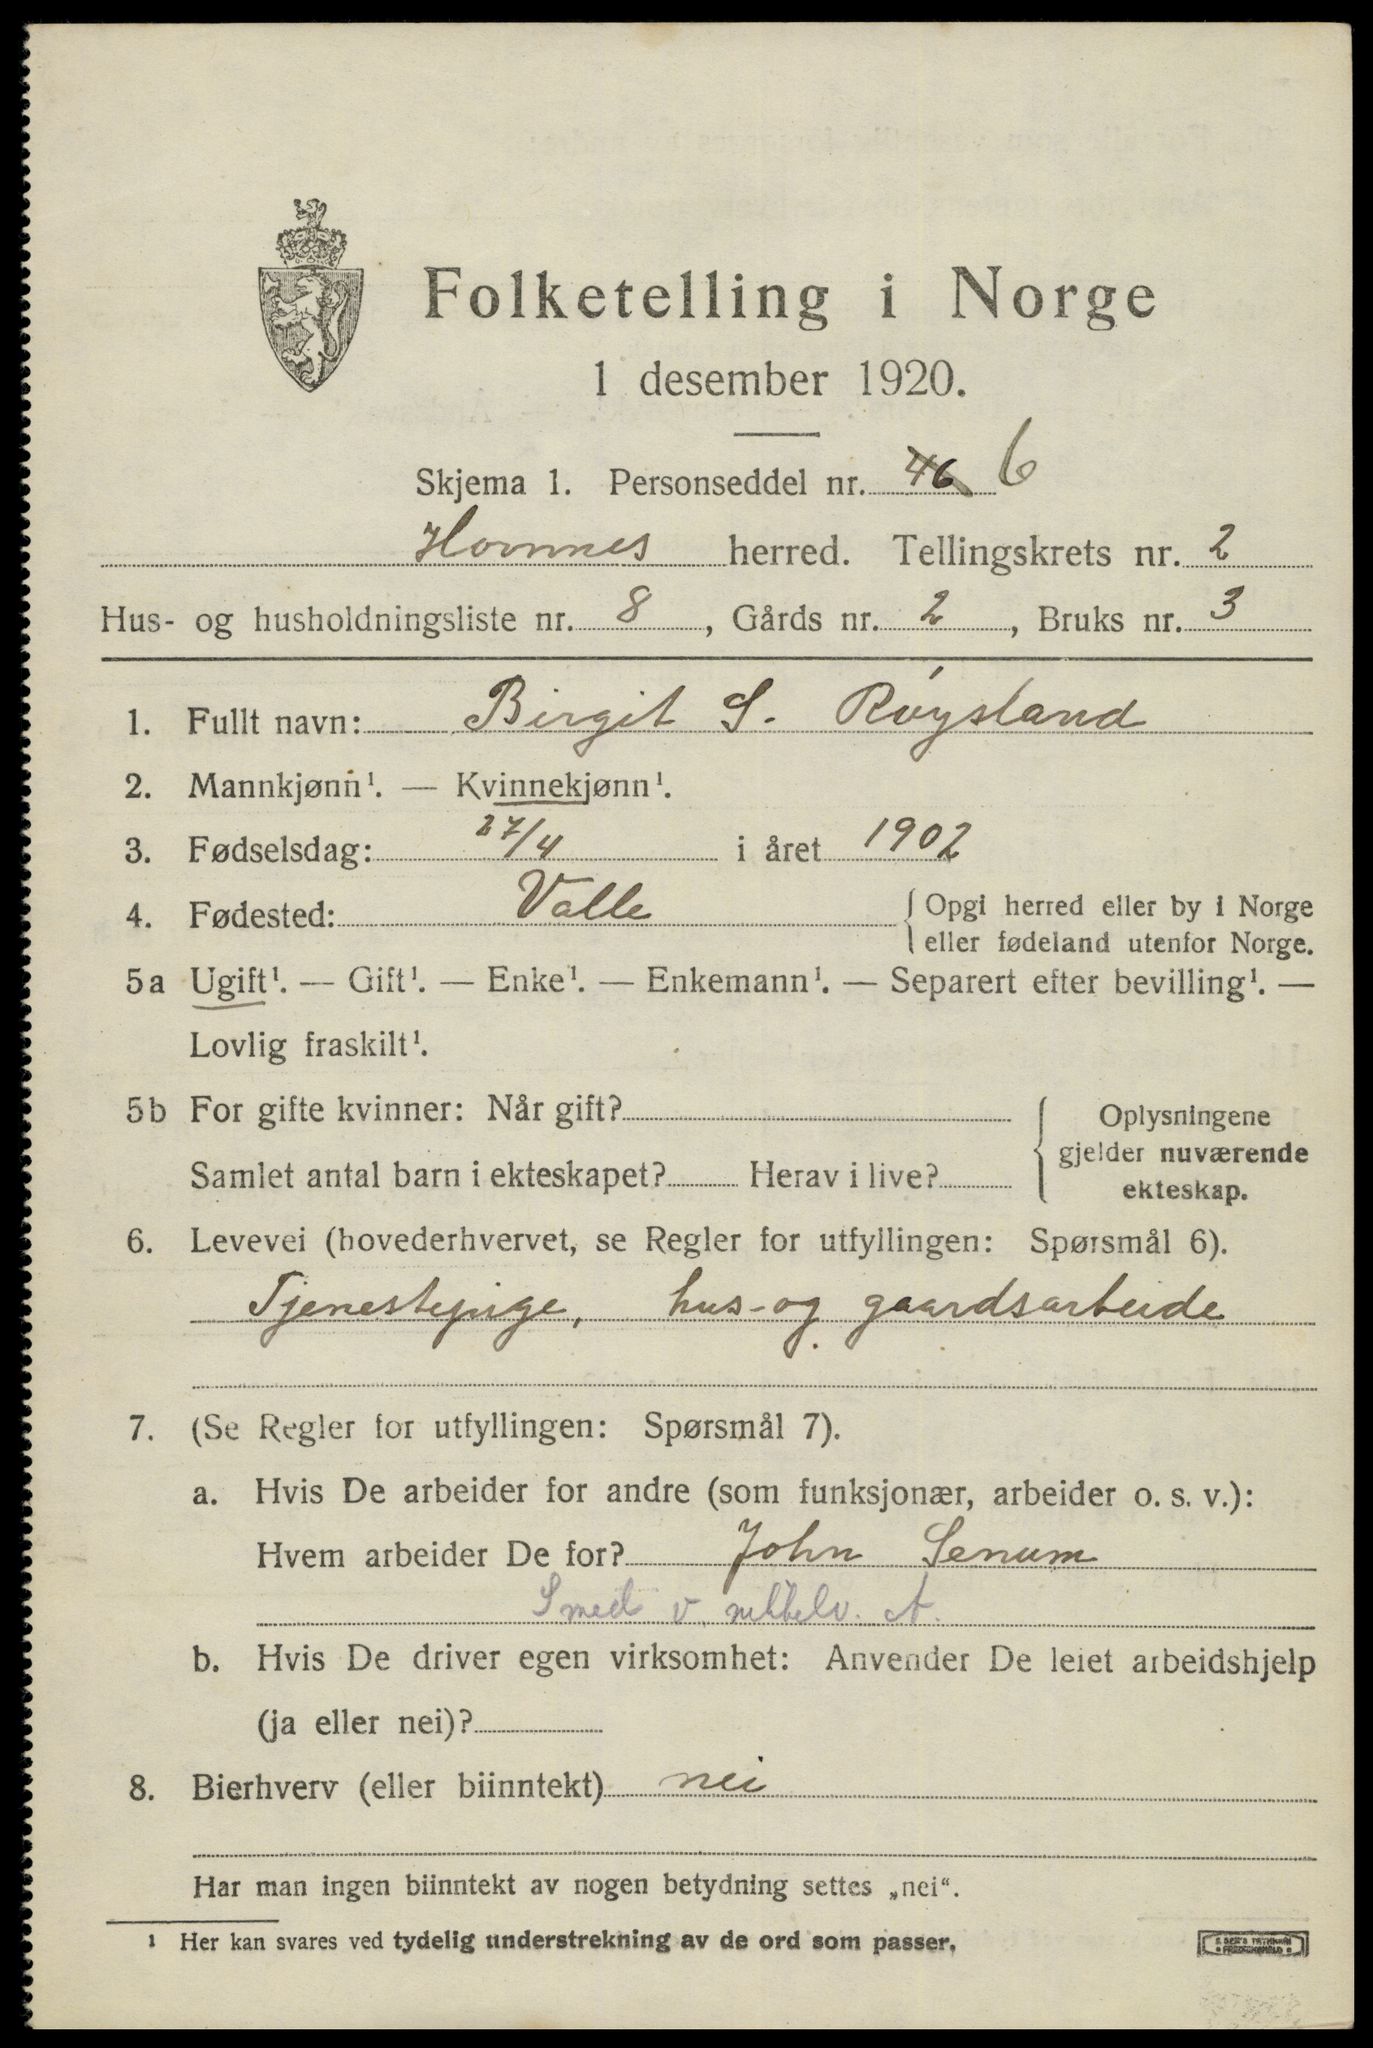 Folketelling i Norge
1 desember 1920.
Skjema 1. Personseddel nr. 46 6
Hornnes herred. Tellingskrets nr. 2
Hus- og husholdningsliste nr. 8, Gårds nr. 2, Bruks nr. 3
1. Fullt navn: Birgit S. Røysland
2. Mannkjønn¹. — Kvinnekjønn¹.
3. Fødselsdag: 27/4 i året 1902
4. Fødested: Valle { Opgi herred eller by i Norge
eller fødeland utenfor Norge.
5a Ugift¹. — Gift¹. — Enke¹. — Enkemann¹. — Separert efter bevilling¹. —
Lovlig fraskilt¹.
5b For gifte kvinner: Når gift?
Samlet antal barn i ekteskapet? Herav i live?
Oplysningene
gjelder nuværende
ekteskap.
6. Levevei (hovederhvervet, se Regler for utfyllingen: Spørsmål 6).
Tjenestepige, hus- og gaardsarbeide
7. (Se Regler for utfyllingen: Spørsmål 7).
a. Hvis De arbeider for andre (som funksjonær, arbeider o. s. v.):
Hvem arbeider De for? John Senum
Smed v. A.
b. Hvis De driver egen virksomhet: Anvender De leiet arbeidshjelp
(ja eller nei)?
8. Bierhverv (eller biinntekt) nei
Har man ingen biinntekt av nogen betydning settes „nei“.
¹ Her kan svares ved tydelig understrekning av de ord som passer.